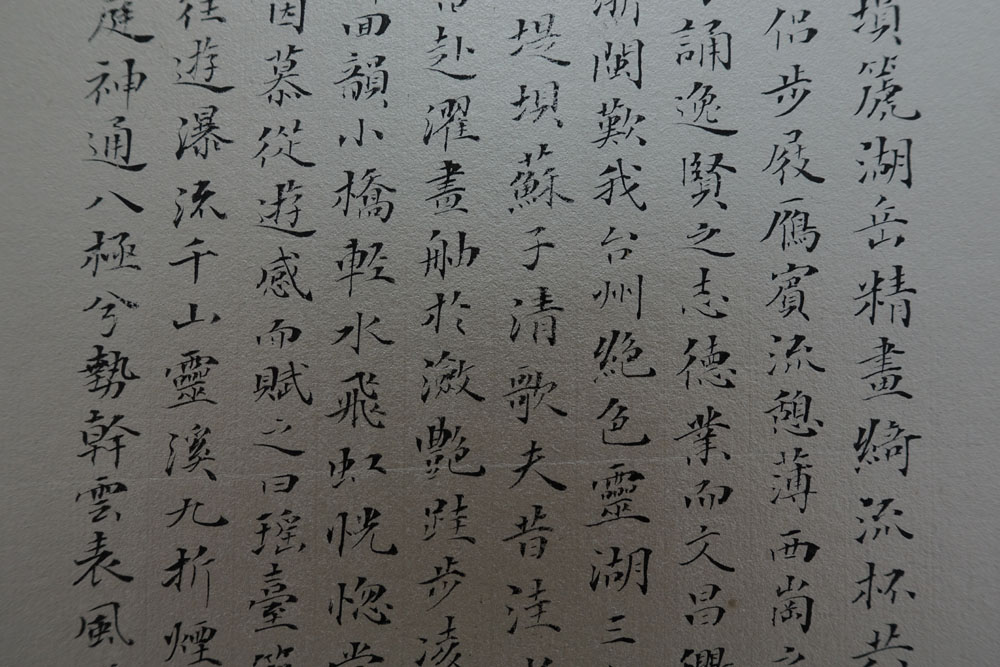 塤箎湖岳精畫綺流杯
侶步屐鴈賓流憩薄西崗之
誦逸賢之志德業而文昌
浙閩歎我台州絕色靈湖三
堤坝蘇子清歌夫昔洼
赴濯畫舳於瀲艷跬步凌
回韻小橋輕水飛虹恍惚
因慕從遊感而賦之曰瑤臺
往遊瀑流千山靈溪九折煙
庭神通八極兮勢幹雲表風